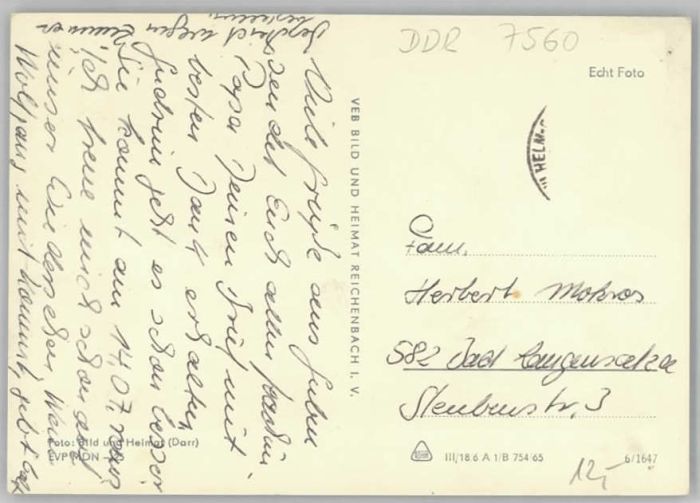 DDR 7560
Echt Foto
HELM
Viele Grüße aus Guben
sendet Euch allen
Papa Deinen Brief mit
besten Dank erhalten,
Gudrun geht es schon besser
Sie kommt am 14.07.
Ich freue mich schon auf
unser Wiedersehen
Wolfgang mit kommt, gebt
Bescheid wegen
VEB BILD UND HEIMAT REICHENBACH I. V.
Fam.
Herbert Mokros
582 Bad Langensalza
Steubenstr. 3
Foto: Bild und Heimat (Darr)
EVP MDN
III/18 6 A 1/B 754 65
6/1647
12,-